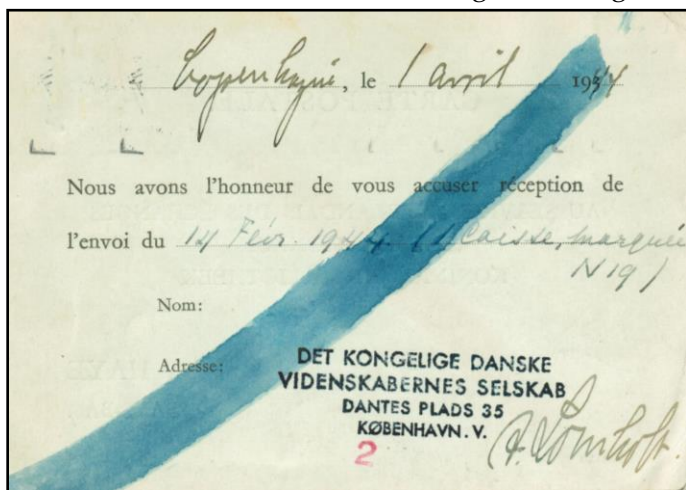 Copenhague, le 1 avril 1944
Nous avons l'honneur de vous accuser réception de
l'envoi du 14 Févr. 1944 (1 Caisse, marquée
N 19)
Nom:
Adresse:
DET KONGELIGE DANSKE
VIDENSKABERNES SELSKAB
DANTES PLADS 35
KØBENHAVN. V.
2